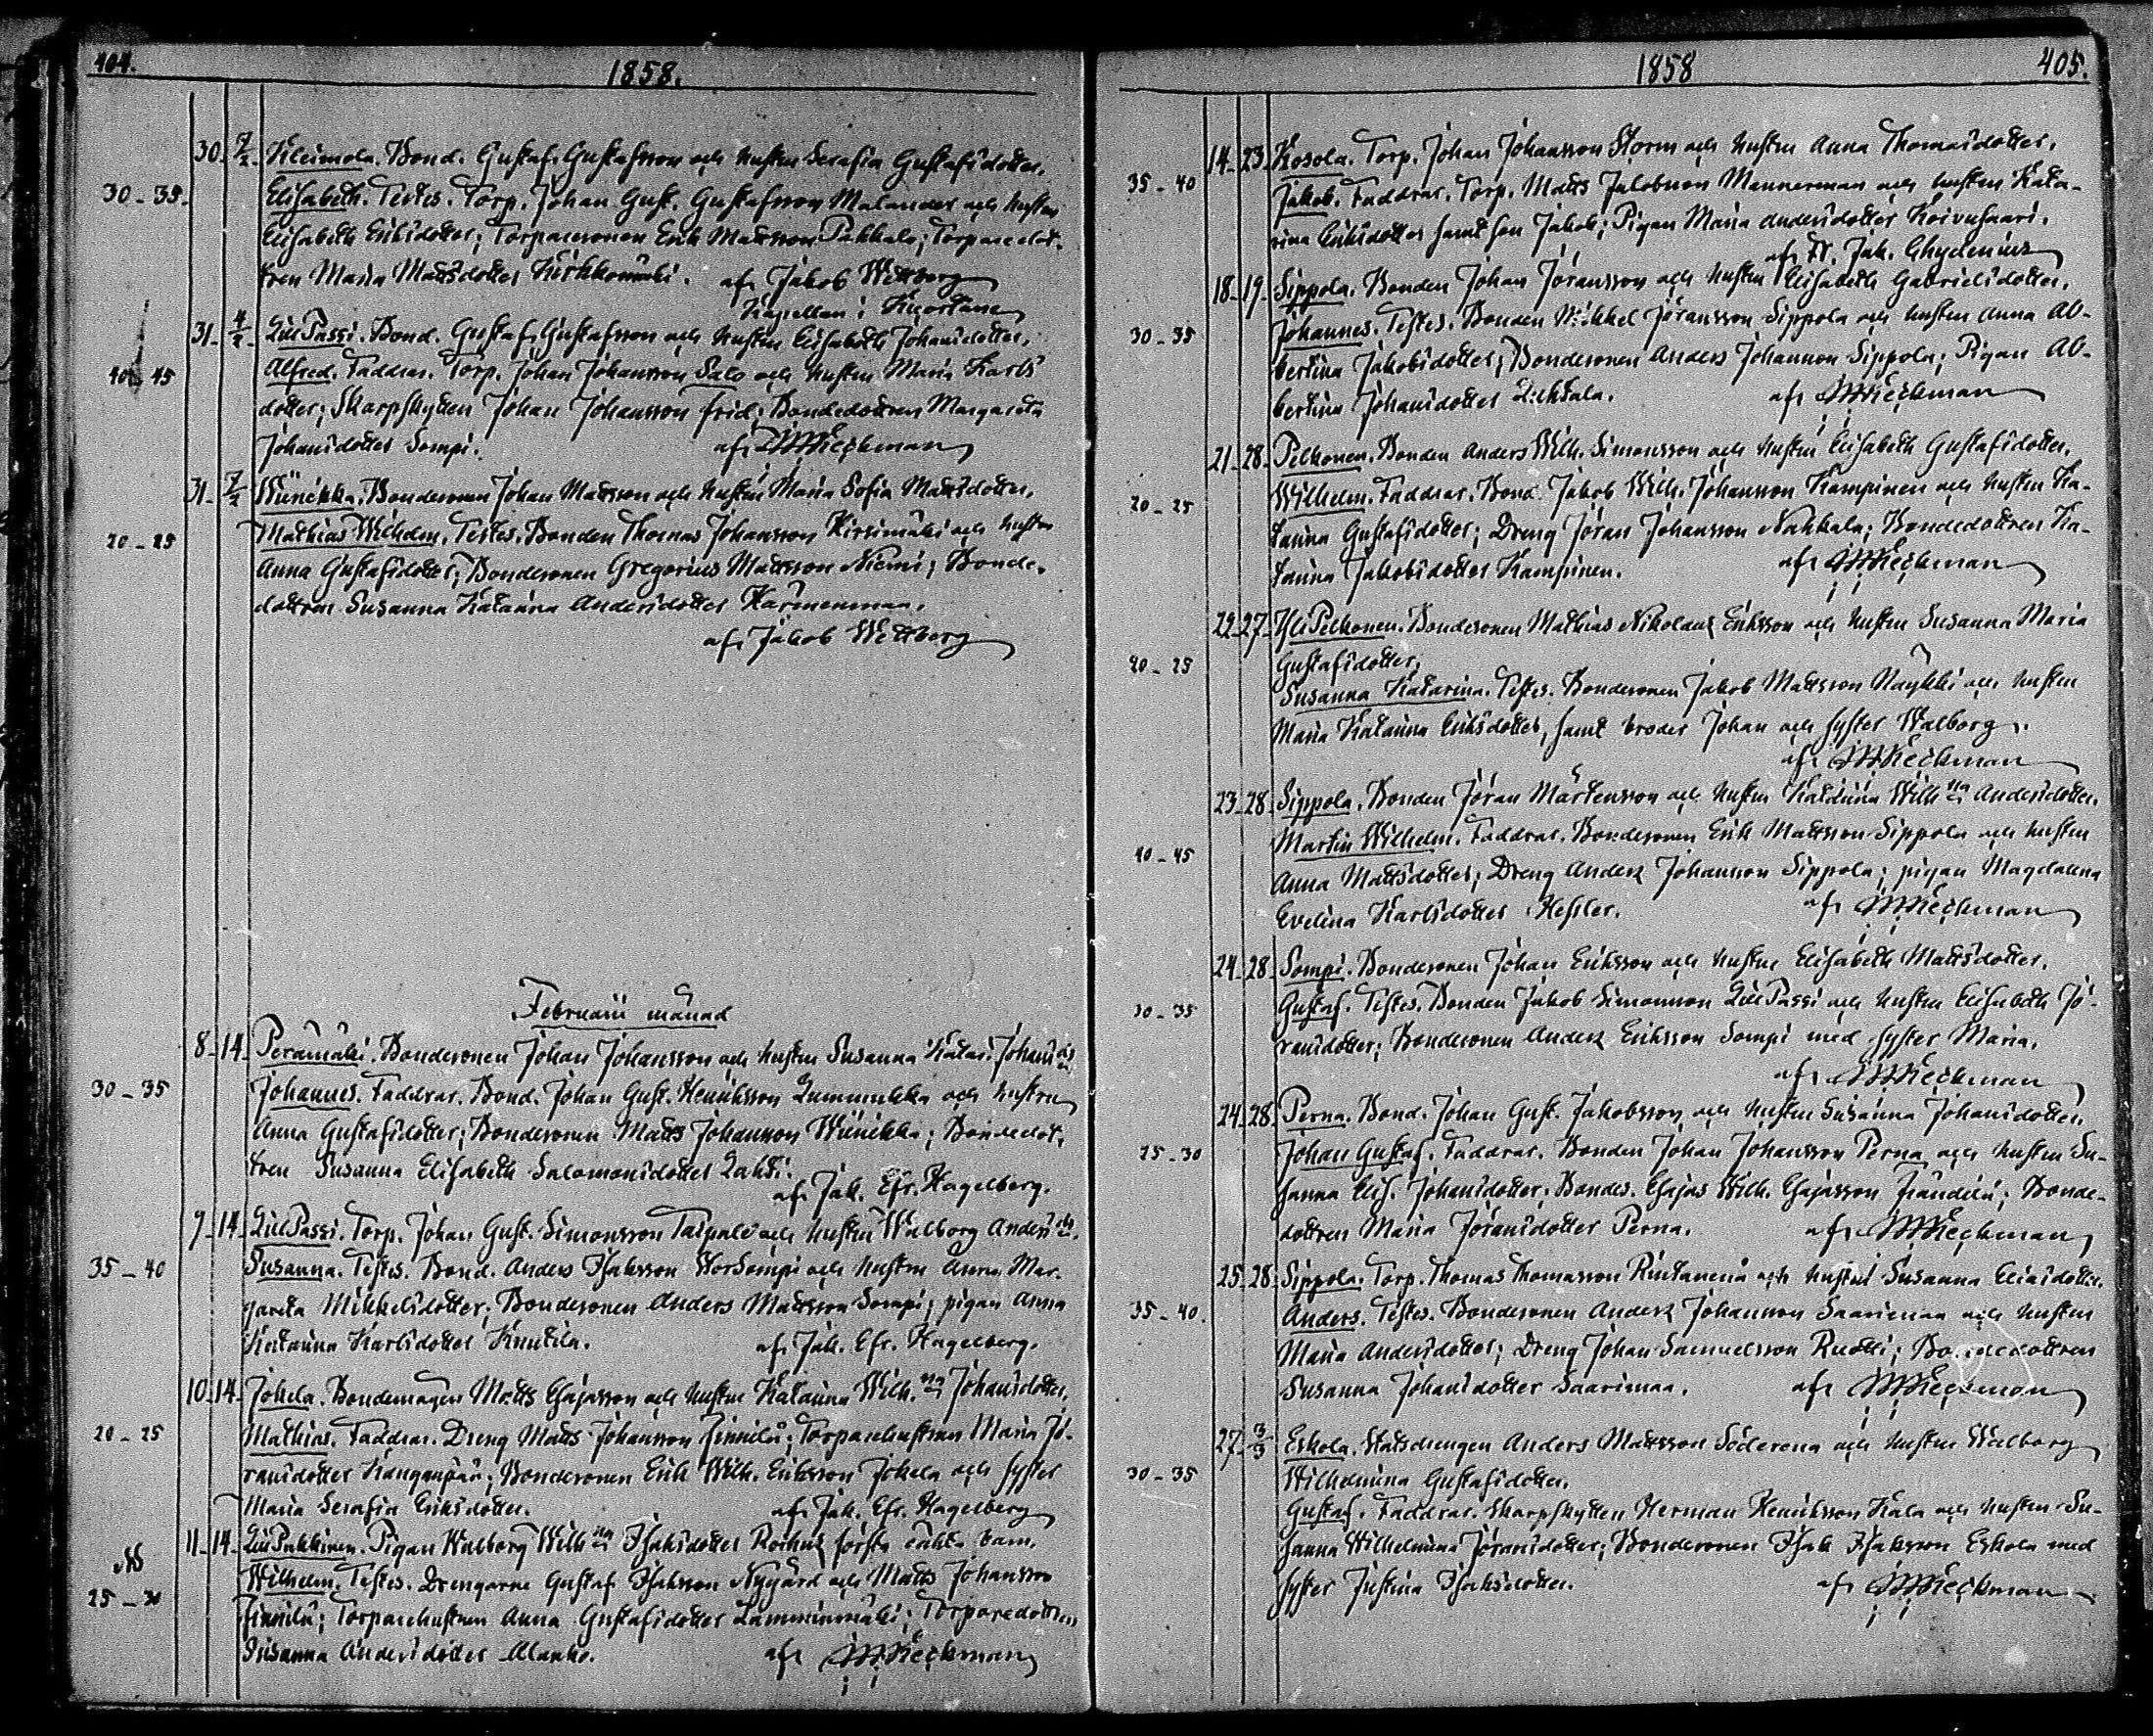 404.
1858.
30. 7/2. Kleimola. Bond. Gustaf Gustafsson och hustru Serafia Gustafsdotter,
30 - 35. Elisabeth. Testes. Torp. Johan Gust. Gustafsson Malander och hustru
Elisabeth Eriksdotter; Torparesonen Erik Mattsson Pakkala; Torparedot-
tren Maria Mattsdotter Kirkkomäki. af Jakob Wettberg
Kapellan i Kuortane
31. 4/2. LillPassi. Bond. Gustaf Gustafsson och hustru Elisabeth Johansdotter,
40 - 45 Alfred. Faddrar. Torp. Johan Johansson Salo och hustru Maria Karls
dotter; Skarpskytten Johan Johansson Frid; Bondedottren Margareta
Johansdotter Sompi. af Keckman
31. 7/2. Wiinikka. Bondesonen Johan Mattsson och hustru Maria Sofia Mattsdotter,
20 - 25 Mathias Wilhelm. Testes. Bonden Thomas Johansson Kirsimäki och hustru
Anna Gustafsdotter; Bondesonen Gregorius Mattsson Niemi; Bonde-
dottren Susanna Katarina Andersdotter Karmenmaa.
af Jakob Wettberg
Februarii månad
8. 14. Perämäki. Bondesonen Johan Johansson och hustru Susanna Katar. Johansdr
30 - 35 Johannes. Faddrar. Bond. Johan Gust. Henriksson Lummukka och hustru
Anna Gustafsdotter; Bondesonen Matts Johansson Wiinikka; Bondedot-
tren Susanna Elisabeth Salomonsdotter Lahti.
af Jak. Efr. Hagelberg.
9. 14. LillPassi. Torp. Johan Gust. Simonsson Taipale och hustru Walborg Andersdr.
35 - 40 Susanna. Testes. Bond. Anders Isaksson StorSompi och hustru Anna Mar-
gareta Mikkelsdotter; Bondesonen Anders Mattsson Sompi; pigan Anna
Katarina Karlsdotter Knutila. af Jak. Efr. Hagelberg.
10. 14. Jokela. Bondemågen Matts Esajasson och hustru Katarina Wilh.na Johansdotter,
20 - 25 Mathias. Faddrar. Dreng Matts Johansson Finnilä; Torparehustrun Maria Jö-
ransdotter Kanganpää; Bondesonen Erik Wilh. Eriksson Jokela och syster
Maria Serafia Eriksdotter. af Jak. Efr. Hagelberg
11. 14. LillPukkinen. Pigan Walborg Wilh.na Isaksdotter första oäkta barn,
25 - 30 Wilhelm. Testes. Drengarne Gustaf Isaksson Nygård och Matts Johansson
Finnilä; Torparehustrun Anna Gustafsdotter Lamminmäki; Torparedottren
Susanna Andersdotter Alanko. af Keckman
1858
405.
14. 23. Kosola. Torp. Johan Johansson Storm och hustru Anna Thomasdotter,
35 - 40 Jakob. Faddrar. Torp. Matts Jakobsson Mannerman och hustru Kata-
rina Eriksdotter samt son Jakob; Pigan Maria Andersdotter Koivusaari.
af Fr. Jak. Chydenius
18. 19. Sippola. Bonden Johan Jöransson och hustru Elisabeth Gabrielsdotter,
30 - 35 Johannes. Testes. Bonden Mikkel Jöransson Sippola och hustru Anna Al-
bertina Jakobsdotter; Bondesonen Anders Johansson Sippola; Pigan Al-
bertina Johansdotter Luhtala. af Keckman
21. 28. Pelkonen. Bonden Anders Wilh. Simonsson och hustru Elisabeth Gustafsdotter,
20 - 25 Wilhelm. Faddrar. Bond. Jakob Wilh. Johansson Kampinen och hustru Ka-
tarina Gustafsdotter; Dreng Jöran Johansson Nahkala; Bondedottren Ka-
tarina Jakobsdotter Kampinen. af Keckman
22. 27. YliPelkonen. Bondesonen Mathias Nikolaus Eriksson och hustru Susanna Maria
20 - 25 Gustafsdotter,
Susanna Katarina. Testes. Bondesonen Jakob Mattsson Näykki och hustru
Maria Katarina Eriksdotter, samt broder Johan och syster Walborg.
af Keckman
23. 28. Sippola. Bonden Jöran Mårtensson och hustru Katarina Wilh.na Andersdotter.
40 - 45 Martin Wilhelm. Faddrar. Bondesonen Erik Mattsson Sippola och hustru
Anna Mattsdotter; Dreng Anders Johansson Sippola; pigan Magdalena
Evelina Karlsdotter Hessler. af Keckman
24. 28. Sompi. Bondesonen Johan Eriksson och hustru Elisabeth Mattsdotter.
30 - 35 Gustaf. Testes. Bonden Jakob Simonsson LillPassi och hustru Elisabeth Jö-
ransdotter; Bondesonen Anders Eriksson Sompi med syster Maria.
af Keckman
24. 28. Perna. Bond. Johan Gust. Jakobsson och hustru Susanna Johansdotter.
25 - 30 Johan Gustaf. Faddrar. Bonden Johan Johansson Perna och hustru Su-
sanna Elis. Johansdotter; Bondes. Esajas Wilh. Esajasson Frändilä; Bonde-
dottren Maria Jöransdotter Perna. af Keckman
25. 28. Sippola. Torp. Thomas Thomasson Rintaneva och hustru Susanna Eliasdotter.
35 - 40. Anders. Testes. Bondesonen Anders Johansson Saarimaa och hustru
Maria Andersdotter; Dreng Johan Samuelsson Ruotti; Bondedottren
Susanna Johansdotter Saarimaa. af Keckman
27. 3/3 Eskola. Statsdrengen Anders Mattsson Söderena och hustru Walborg
30 - 35 Wilhelmina Gustafsdotter.
Gustaf. Faddrar. Skarpskytten Herman Henriksson Kala och hustru Su-
sanna Wilhelmina Jöransdotter; Bondesonen Isak Isaksson Eskola med
syster Justina Isaksdotter. af Keckman